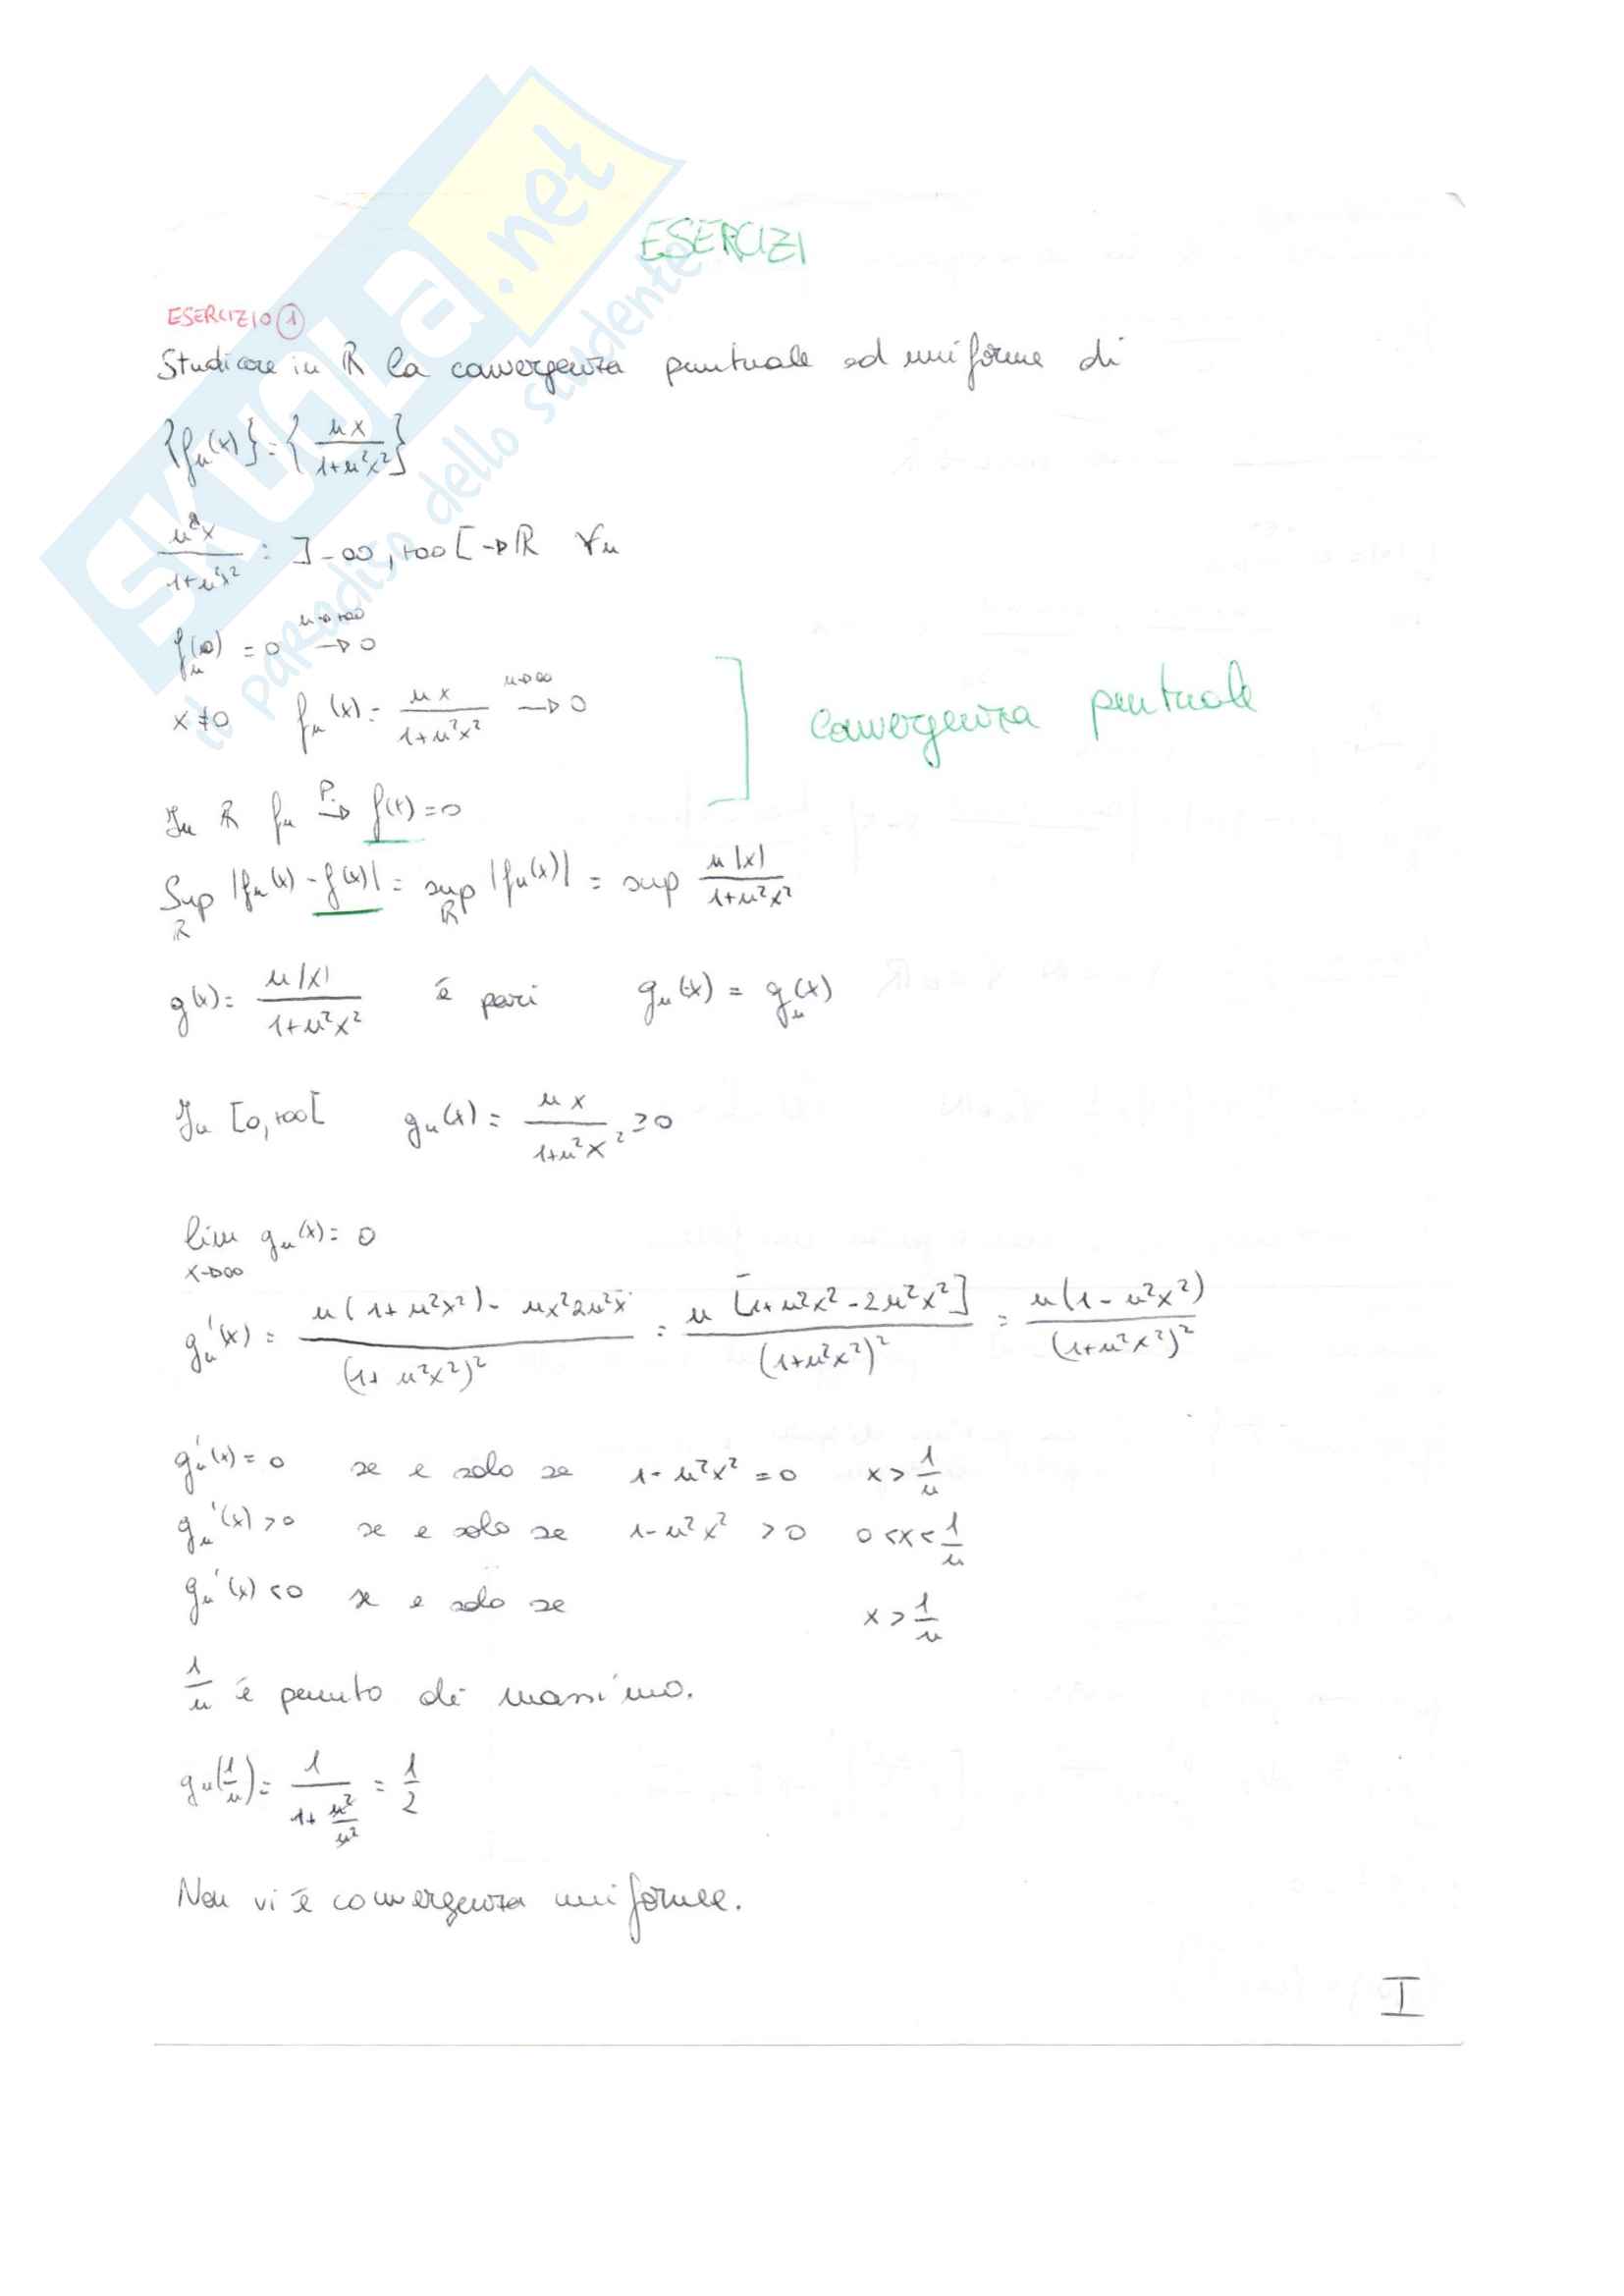 SKUOLA.net
il paradiso dello studente
ESERCIZI
ESERCIZIO ①
Studiare in ℝ la convergenza puntuale ed uniforme di
{fₙ(x)} = { nx / (1+n²x²) }
n²x / (1+n²x²) : ]-∞,+∞[ → ℝ ∀n
fₙ(0) = 0 →(n→+∞) 0
x ≠ 0 fₙ(x) = nx / (1+n²x²) →(n→∞) 0
convergenza puntuale
In ℝ fₙ →(P.) f(x) = 0
Sup_ℝ |fₙ(x) - f(x)| = sup_ℝ |fₙ(x)| = sup n|x| / (1+n²x²)
g(x) = n|x| / (1+n²x²) è pari gₙ(-x) = gₙ(x)
In [0,+∞[ gₙ(x) = nx / (1+n²x²) ≥ 0
lim_{x→∞} gₙ(x) = 0
gₙ'(x) = (n(1+n²x²) - nx²2n²x) / (1+n²x²)² = n[1+n²x²-2n²x²] / (1+n²x²)² = n(1-n²x²) / (1+n²x²)²
gₙ'(x) = 0 se e solo se 1-n²x² = 0 x > 1/n
gₙ'(x) > 0 se e solo se 1-n²x² > 0 0<x<1/n
gₙ'(x) < 0 se e solo se x > 1/n
1/n è punto di massimo.
gₙ(1/n) = 1 / (1+n²/n²) = 1/2
Non vi è convergenza uniforme.
I